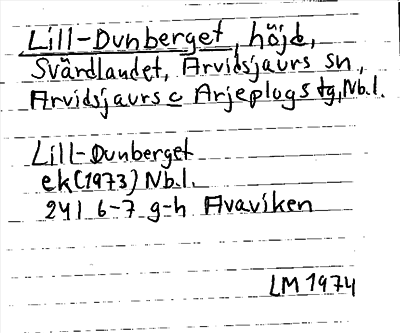 Lill-Dunberget, höjd,
Svärdlandet, Arvidsjaurs sn,
Arvidsjaurs o Arjeplogs tg, Nb.l.
Lill-Dunberget
ek (1973) Nb.l.
24I 6-7 g-h Avaviken
LM 1974